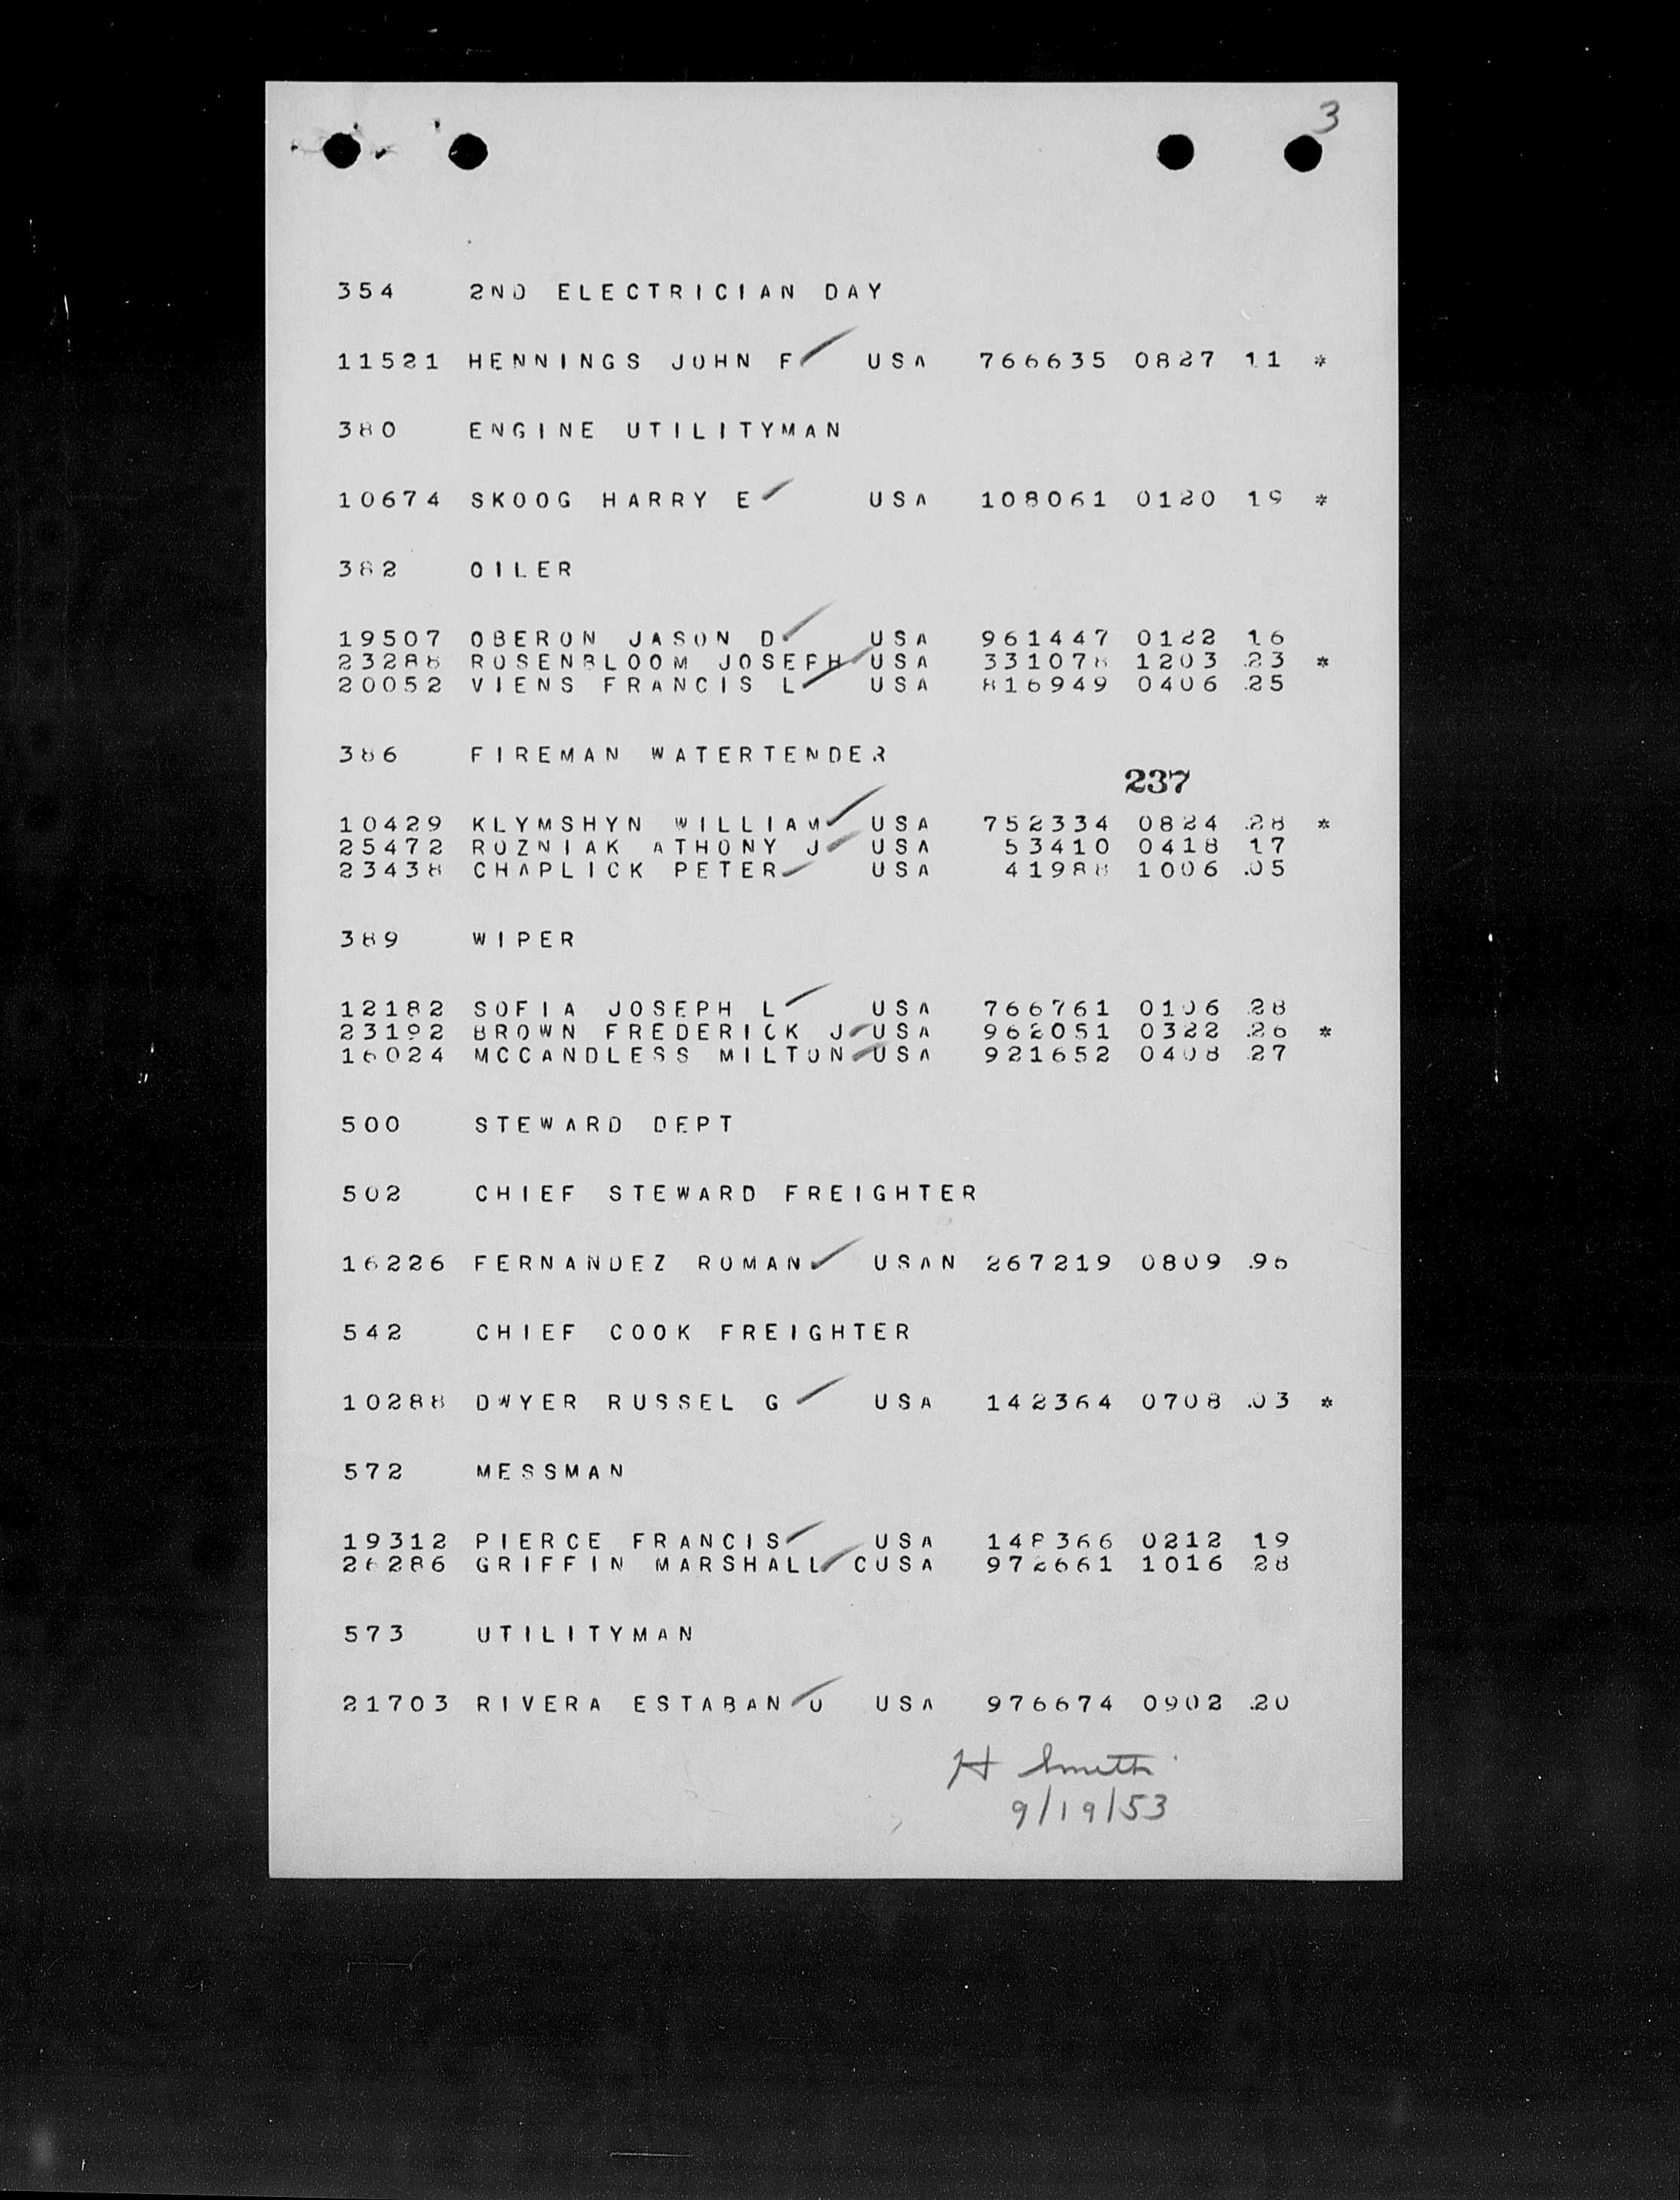 3
354 2ND ELECTRICIAN DAY
11521 HENNINGS JOHN F USA 766635 0827 11 *
380 ENGINE UTILITYMAN
10674 SKOOG HARRY E USA 108061 0120 19 *
382 OILER
19507 OBERON JASON D USA 961447 0122 16
23288 ROSENBLOOM JOSEPH USA 331078 1203 .23 *
20052 VIENS FRANCIS L USA 816949 0406 .25
386 FIREMAN WATERTENDER
237
10429 KLYMSHYN WILLIAM USA 752334 0824 .28 *
25472 ROZNIAK ATHONY J USA 53410 0418 17
23438 CHAPLICK PETER USA 41988 1006 .05
389 WIPER
12182 SOFIA JOSEPH L USA 766761 0106 28
23192 BROWN FREDERICK J USA 962051 0322 .26 *
16024 MCCANDLESS MILTON USA 921652 0408 27
500 STEWARD DEPT
502 CHIEF STEWARD FREIGHTER
16226 FERNANDEZ ROMAN USAN 267219 0809 .96
542 CHIEF COOK FREIGHTER
10288 DWYER RUSSEL G USA 142364 0708 .03 *
572 MESSMAN
19312 PIERCE FRANCIS USA 148366 0212 19
26286 GRIFFIN MARSHALL CUSA 972661 1016 28
573 UTILITYMAN
21703 RIVERA ESTABAN O USA 976674 0902 .20
H Smith
9/19/53